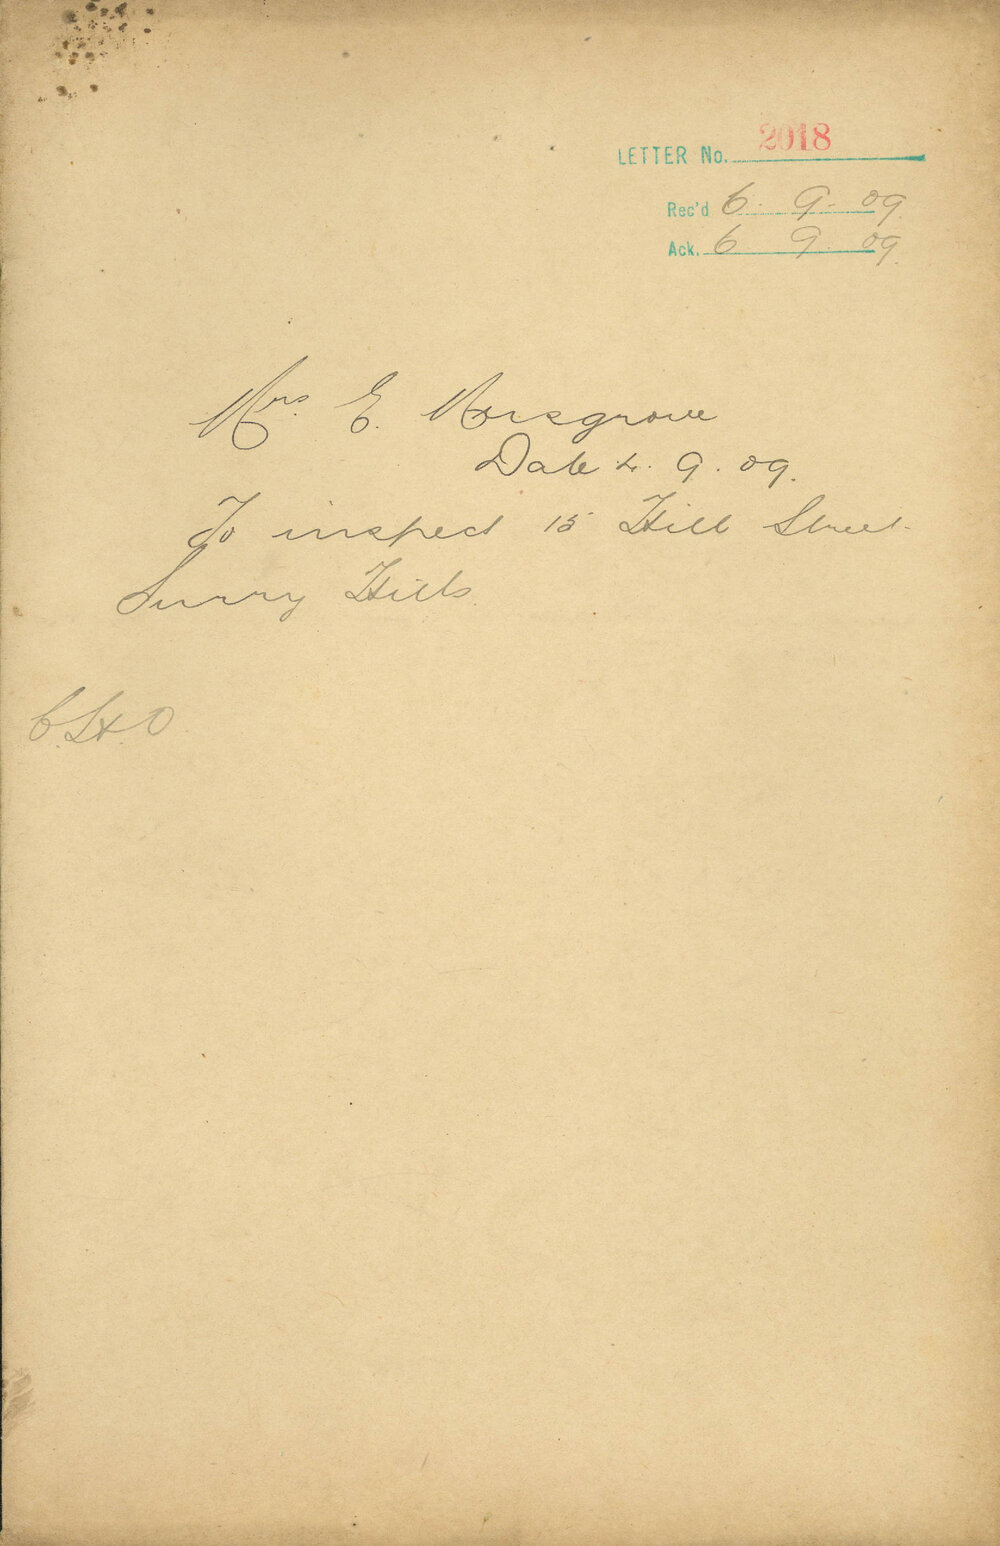 LETTER No. 2018
Rec'd 6. 9. 09.
Ack. 6 9. 09.
Mrs. E. Morsgrove
Date 4. 9. 09.
To inspect 15 Hill Street
Surry Hills
C.H.O